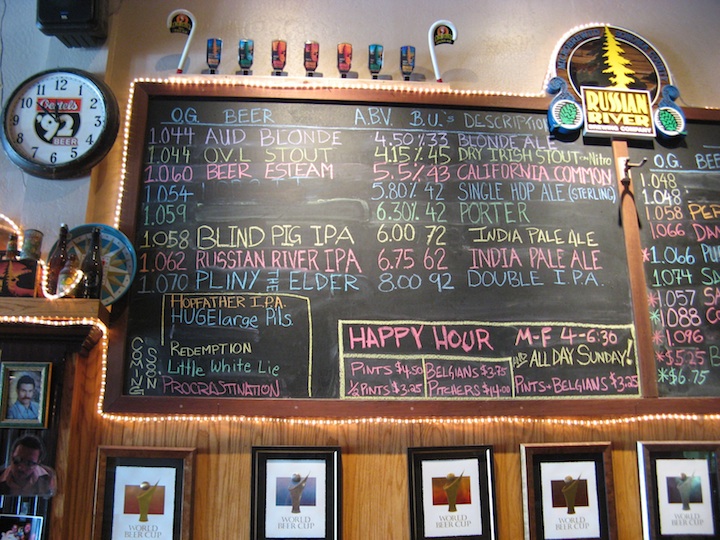 12
1
2
3
4
5
6
7
8
9
10
11
Oertels
'92
BEER
RUSSIAN
RIVER
BREWING COMPANY
O.G. BEER A.B.V. B.U.'s DESCRIPTION
1.044 AUD BLONDE 4.50% 33 BLONDE ALE
1.044 O.V.L STOUT 4.15% 45 DRY IRISH STOUT on Nitro
1.060 BEER ESTEAM 5.5% 43 CALIFORNIA COMMON
1.054 5.80% 42 SINGLE HOP ALE (STERLING)
1.059 6.30% 42 PORTER
1.058 BLIND PIG IPA 6.00 72 INDIA PALE ALE
1.062 RUSSIAN RIVER IPA 6.75 62 INDIA PALE ALE
1.070 PLINY THE ELDER 8.00 92 DOUBLE I.P.A.
COMING SOON
HOPFATHER I.P.A.
HUGElarge Pils.
REDEMPTION
Little White Lie
PROCRASTINATION
HAPPY HOUR M-F 4-6:30
and ALL DAY SUNDAY!
PINTS $4.50 BELGIANS $3.75
½ PINTS $3.25 PITCHERS $14.00 PINTS + BELGIANS $3.25
O.G. BEER
1.048
1.048
1.058 PE
1.066 DAM
*1.066 PU
1.074 SA
*1.057 SA
*1.088 CO
*1.100
*$5.25 B
*$6.75
WORLD
BEER CUP
WORLD
BEER CUP
WORLD
BEER CUP
WORLD
BEER CUP
WORLD
BEER CUP